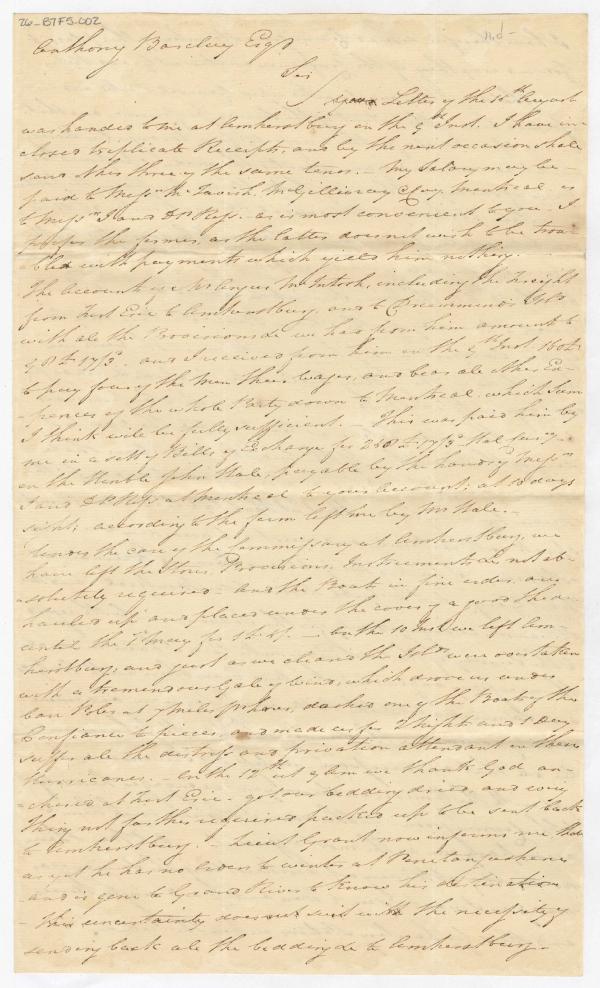 26-B7F5-002
n.d-
Anthony Barclay Esqr
Sir
Letter of the 16th August
was handed to me at Amherstburg on the 9th Inst. I have in-
closed triplicate Receipts, and by the next occasion shall
send others three of the same tenor. – My Salary may be
paid to Messrs McTavish, McGillivray & Coy. Montreal or
to Messrs J and Ross. as is most convenient to you. I
prefer the former, as the latter does not wish to be trou-
-bled with payments which yield him nothing. –
The Account of Mr Angus McIntosh, including the Freight
from Fort Erie to Amherstburg, and to Drummond's Isld
with all the Provisions &c we had from him amount to
and I received from him on the 9th Inst.
to pay four of the Men their Wages, and bear all other Ex-
-pences of the whole Party down to Montreal, which Sum
I think will be fully sufficient. – This was paid him by
me in a sett of Bills of Exchange for
on the Honble John Hale, payable by the hands of Messrs
J and Ross at Montreal to your Account; at 10 days
sight; according to the form left me by Mr Hale. –
Under the care of the Commissary at Amherstburg, we
have left the Stores, Provisions, Instruments &c not ab-
-solutely required – and the Boat in fine order. are
hauled up and placed under the cover of a good shed
until the 1st May for
On the 10 Inst we left Am-
herstburg, and just as we cleared the Islds were overtaken
with a tremendous Gale of Wind, which drove us under
bare Poles at 9 Miles pr hour, dashed one of the Boats of the
Confiance to pieces, and made us for 2 Nights and 1 Day
suffer all the distress and privation attendant on these
Hurricanes. – On the 12th at 9 Am we thank God an-
-chored at Fort Erie. got our bedding dried, and every
thing not further required packed up to be sent back
to Amherstburg. – Lieut Grant now informs me that
as yet he has no orders to winter at Penetangushene
and is gone to Grand River to know his destination
– This uncertainty does not suit with the necessity of
sending back all the bedding &c to Amherstburg –